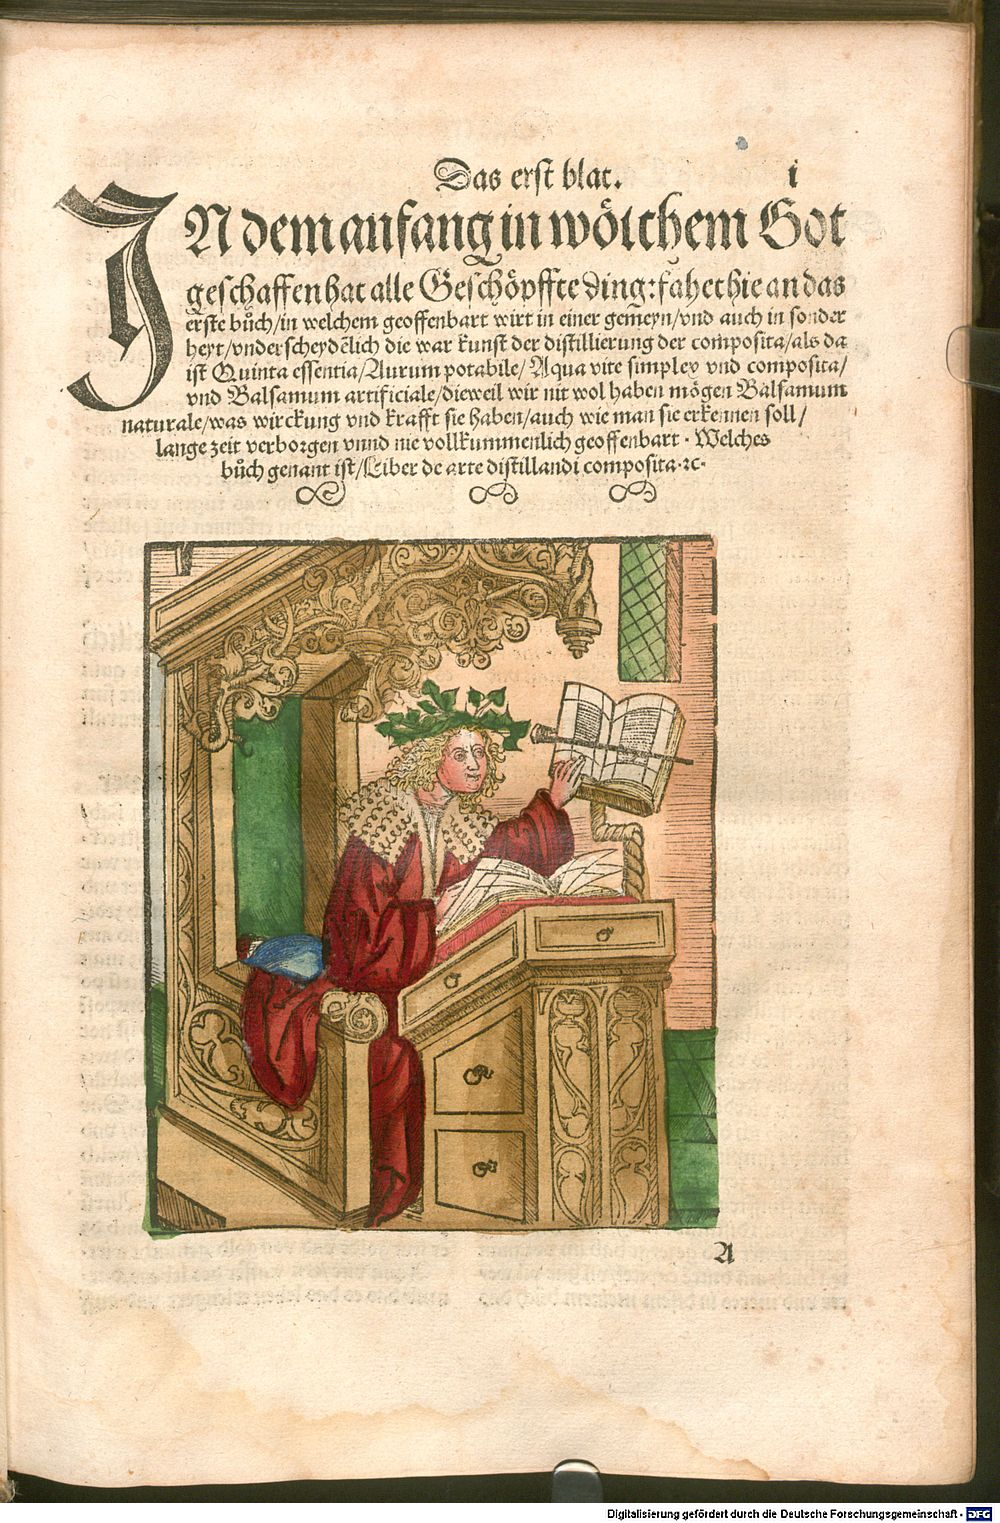 Das erst blat. i
IN dem anfang in wölchem Got
geschaffen hat alle Geschöpffte ding: fahet hie an das
erste bůch/in welchem geoffenbart wirt in einer gemeyn/vnd auch in sonder
heyt/vnderscheydẽlich die war kunst der distillierung der composita/als da
ist Quinta essentia/Aurum potabile/Aqua vite simplex vnd composita/
vnd Balsamum artificiale/dieweil wir nit wol haben mögen Balsamum
naturale/was wirckung vnd krafft sie haben/auch wie man sie erkennen soll/
lange zeit verborgen vnnd nie vollkummenlich geoffenbart. Welches
bůch genant ist/Liber de arte distillandi composita.ꝛc.
A
Digitalisierung gefördert durch die Deutsche Forschungsgemeinschaft - DFG